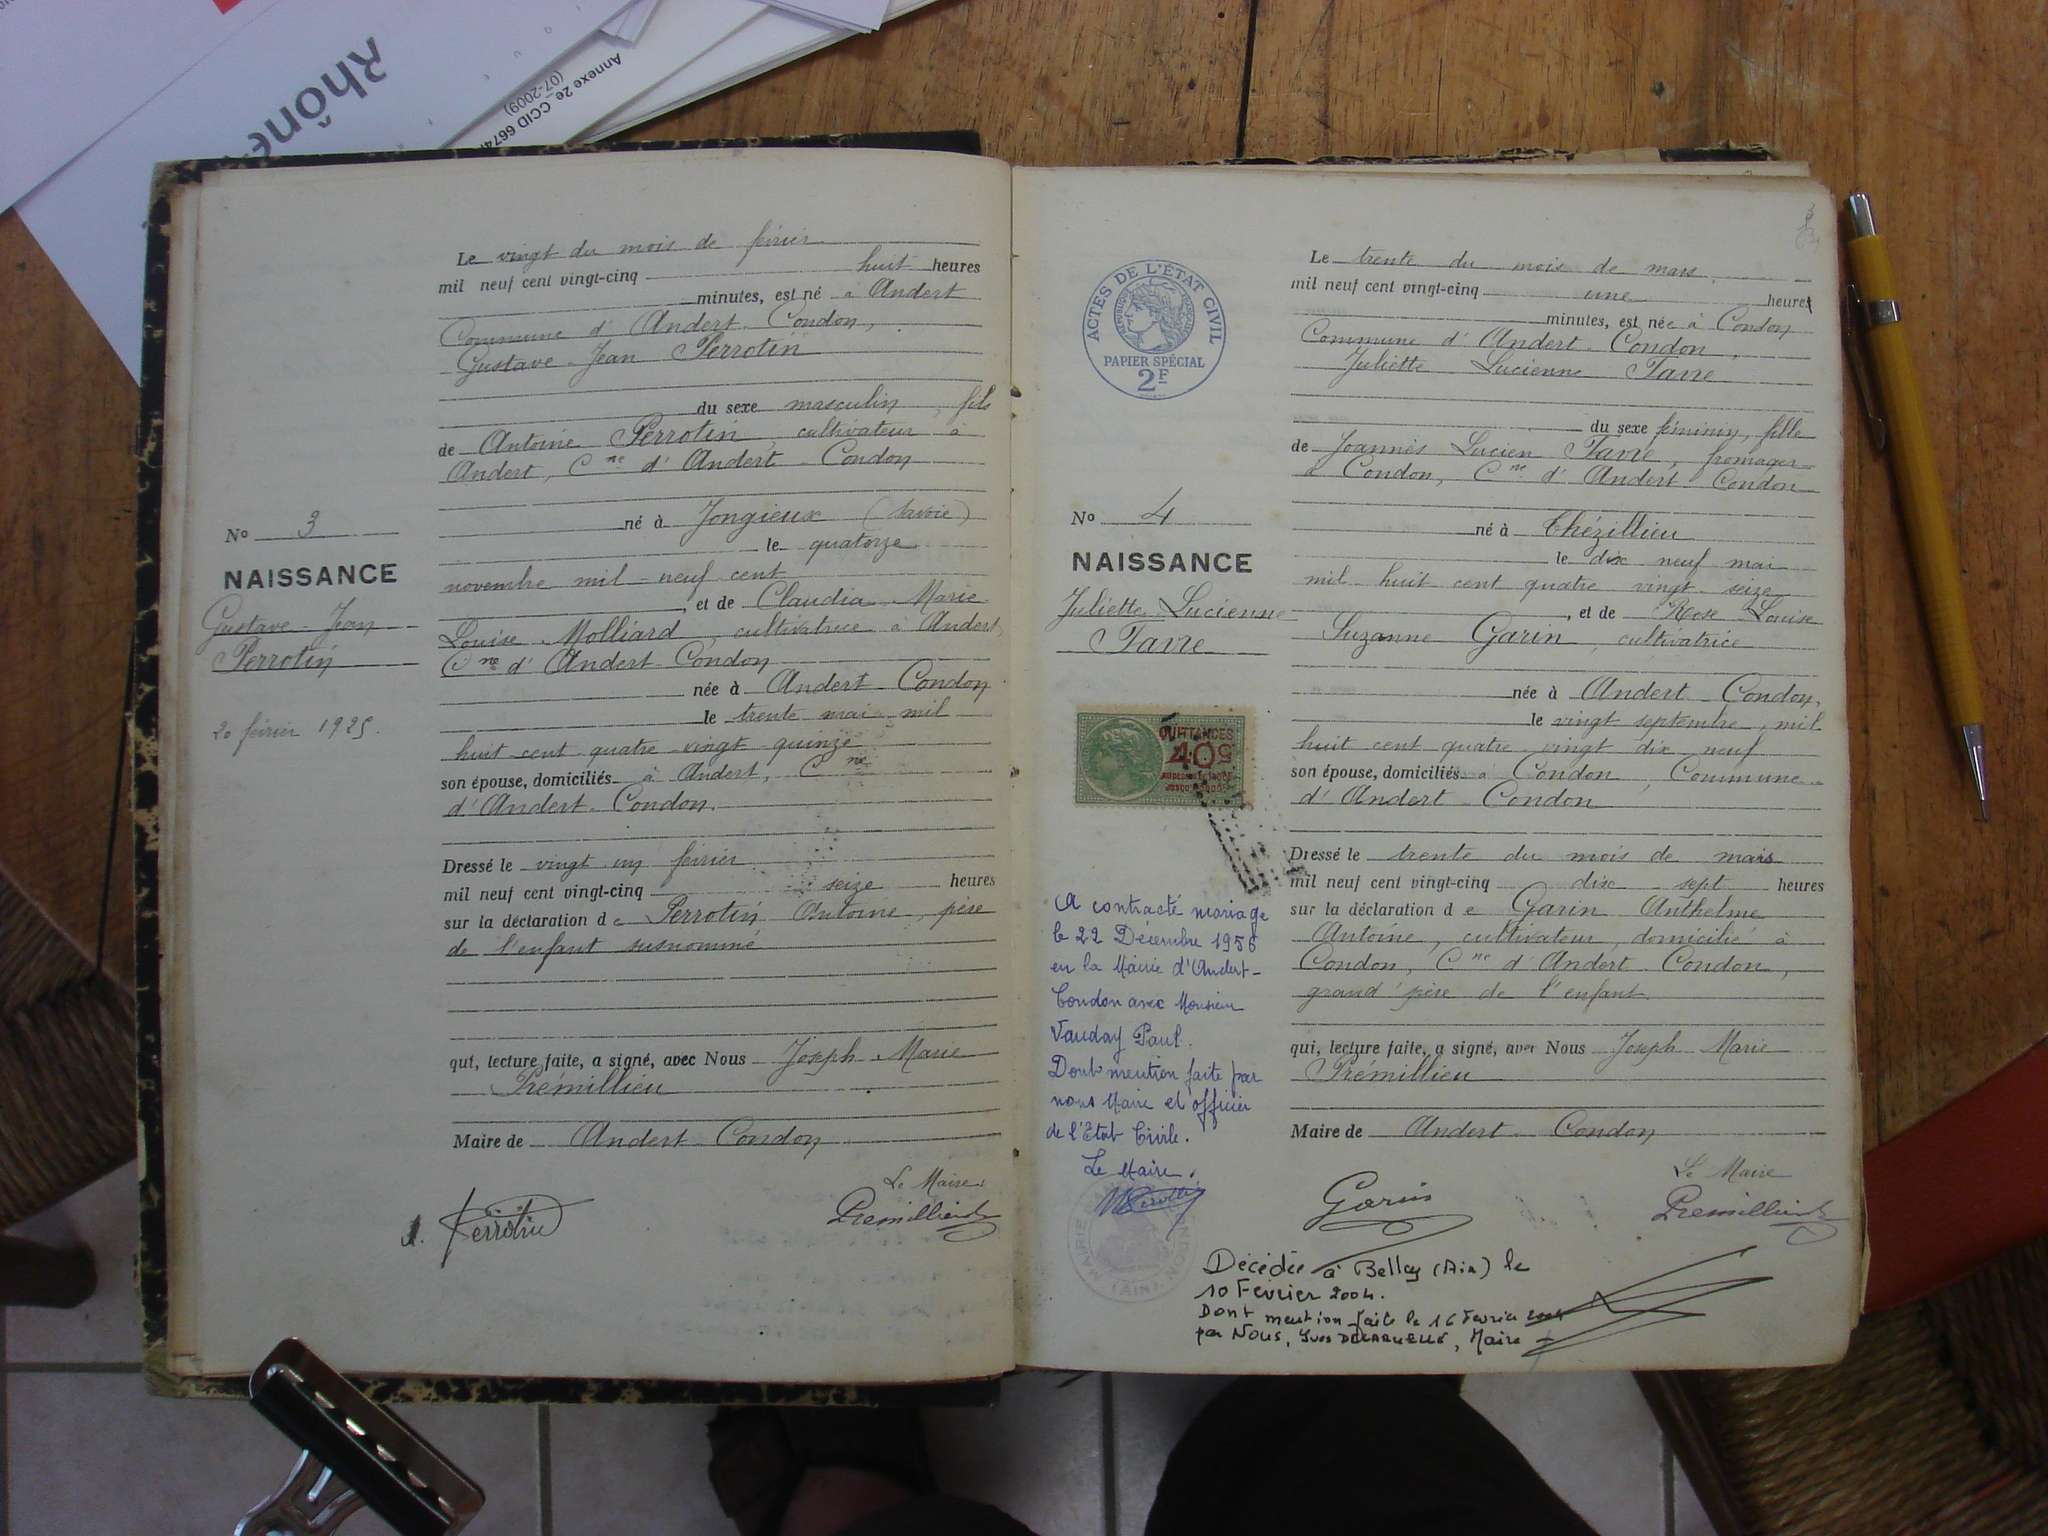 Rhône
Annexe 2e_CCID 6674
(07-2009)
Le vingt du mois de février
mil neuf cent vingt-cinq huit heures
minutes, est né à Andert
Commune d'Andert-Condon,
Gustave Jean Perrotin
du sexe masculin, fils
de Antoine Perrotin, cultivateur à
Andert, Cne d'Andert-Condon
né à Jongieux (Savoie)
le quatorze
novembre mil neuf cent
, et de Claudia Marie
Louise Molliard, cultivatrice à Andert,
Cne d'Andert-Condon
née à Andert-Condon
le trente mai mil
huit cent quatre vingt quinze
son épouse, domiciliés à Andert, Cne
d'Andert-Condon.
Dressé le vingt un février
mil neuf cent vingt-cinq seize heures
sur la déclaration de Perrotin Antoine, père
de l'enfant susnommé
qui, lecture faite, a signé, avec Nous Joseph Marie
Prémillieu
Maire de Andert-Condon
Le Maire.
A. Perrotin
Premillieu
No 3
NAISSANCE
Gustave-Jean
Perrotin
20 février 1925.
ACTES DE L'ÉTAT CIVIL
PAPIER SPÉCIAL
2F
No 4
NAISSANCE
Juliette Lucienne
Favre
QUITTANCES
40c
A contracté mariage
le 22 Décembre 1956
en la Mairie d'Andert-
Condon avec Monsieur
Vauday Paul.
Dont mention faite par
nous Maire et officier
de l'Etat Civile.
Le Maire.
MAIRIE
CONDON
(AIN)
Le trente du mois de mars
mil neuf cent vingt-cinq une heures
minutes, est née à Condon
Commune d'Andert-Condon,
Juliette Lucienne Favre
du sexe féminin, fille
de Joannès Lucien Favre, fromager
à Condon, Cne d'Andert Condon
né à Thézillieu
le dix neuf mai
mil huit cent quatre vingt seize
, et de Rose Louise
Suzanne Garin, cultivatrice
née à Andert-Condon,
le vingt septembre mil
huit cent quatre vingt dix neuf
son épouse, domiciliés à Condon, Commune
d'Andert-Condon
Dressé le trente du mois de mars
mil neuf cent vingt-cinq dix sept heures
sur la déclaration de Garin Anthelme
Antoine, cultivateur, domicilié à
Condon, Cne d'Andert Condon,
grand'père de l'enfant.
qui, lecture faite, a signé, avec Nous Joseph Marie
Prémillieu
Maire de Andert-Condon
Le Maire
Garin
Premillieu
Décédée à Belley (Ain) le
10 Février 2004.
Dont mention faite le 16 Février 2004
par Nous, Yves DELARUELLE, Maire